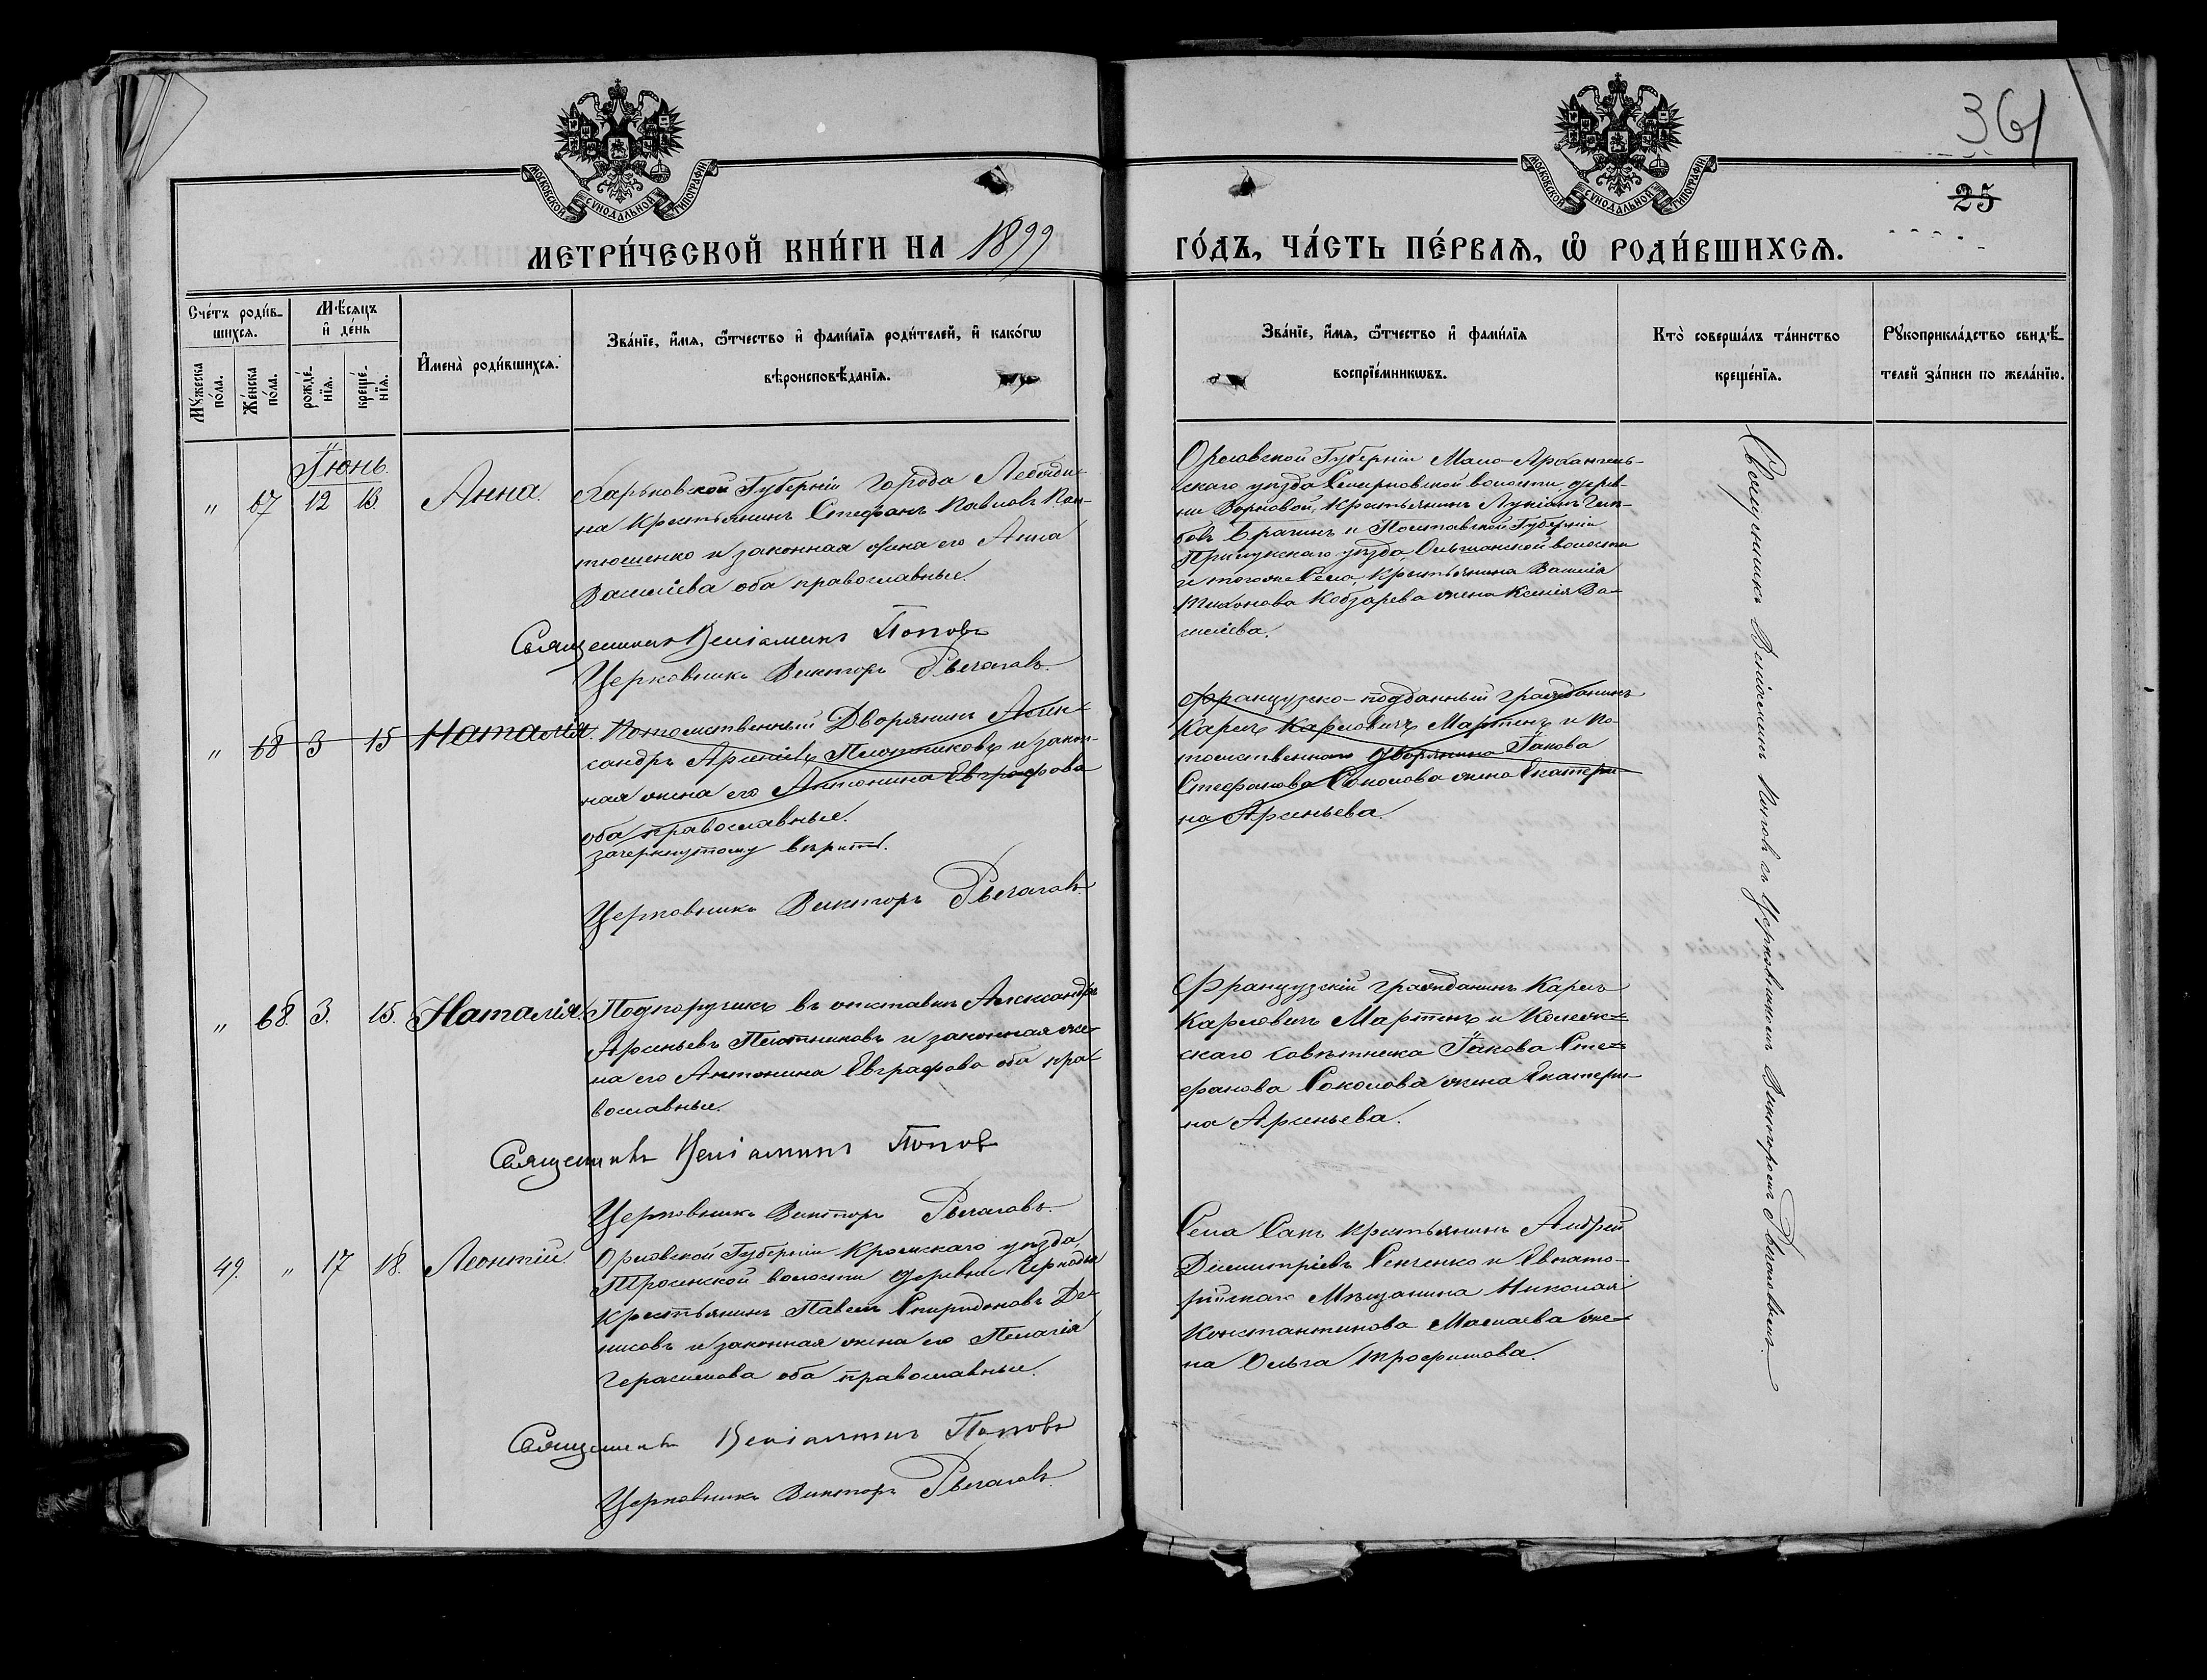 361
25
МОСКОВСКОЙ СѴНОДАЛЬНОЙ ТИПОГРАФІИ
МОСКОВСКОЙ СѴНОДАЛЬНОЙ ТИПОГРАФІИ
МЕТРИ́ЧЕСКОЙ КНИ́ГИ НА 1899
ГО́ДЪ, ЧА́СТЬ ПЕ́РВАѦ, Ѡ҆ РОДИ́ВШИХСѦ.
Сче́тъ роди́в-
шихсѧ.
Мꙋ́жеска по́ла.
Же́нска по́ла.
Мѣ́сѧцъ
и҆ де́нь
рожде́-
нїѧ.
креще́-
нїѧ.
И҆мена̀ роди́вшихсѧ.
Зва́нїе, и҆́мѧ, ѻ҆́тчество и҆ фами́лїѧ роди́телей, и҆ како́гѡ
вѣроисповѣ́данїѧ.
Зва́нїе, и҆́мѧ, ѻ҆́тчество и҆ фами́лїѧ
воспрїе́мникѡвъ.
Кто̀ соверша́лъ та́инство
креще́нїѧ.
Рꙋкоприкла́дство свидѣ́-
телей за́писи по жела́нїю.
Іюнь.
" 67 12 13. Анна.
Харьковской Губерніи города Лебеди-
на крестьянинъ Стефанъ Павловъ
и законная жена его Анна
Васильева оба православные.
Священникъ Веніаминъ Поповъ
Церковникъ Викторъ Рычаговъ.
Орловской Губерніи Мало-Архангель-
скаго уѣзда волости, дерев-
ни крестьянинъ
Брагинъ и Полтавской Губерніи
Прилукскаго уѣзда, Ольшанской волости
и того же села, крестьянина Василія
Тихонова Кобзарева жена Ксенія Ва-
сильева.
" 68 3 15 Наталія.
Потомственный Дворянинъ Алек-
сандръ Арсеніевъ Плотниковъ и закон-
ная жена его Антонина Евграфова
оба православные.
зачеркнутому вѣрить.
Церковникъ Викторъ Рычаговъ.
Французско-подданный гражданинъ
Карлъ Карловичъ Мартенъ и по-
томственнаго дворянина Іакова
Стефанова Соколова жена Екатери-
на Арсеньева.
" 68. 3. 15. Наталія.
Подпоручикъ въ отставкѣ Александръ
Арсеньевъ Плотниковъ и законная же-
на его Антонина Евграфова оба пра-
вославные.
Священникъ Веніаминъ Поповъ
Церковникъ Викторъ Рычаговъ.
Французскій гражданинъ Карлъ
Карловичъ Мартенъ и Коллеж-
скаго совѣтника Іакова Сте-
фанова Соколова жена Екатери-
на Арсеньева.
49. " 17 18. Леонтій.
Орловской Губерніи Кромскаго уѣзда,
Тросенской волости деревни
крестьянинъ Павелъ Спиридоновъ Де-
нисовъ и законная жена его Пелагія
Герасимова оба православные.
Священникъ Веніаминъ Поповъ
Церковникъ Викторъ Рычаговъ.
Села Саки крестьянинъ Андрей
Димитріевъ Сенченко и Евпато-
рійскаго Мѣщанина Николая
Константинова жe-
на Ольга Трофимова.
Священникъ Веніаминъ Поповъ съ Церковникомъ Викторомъ Рычаговымъ.